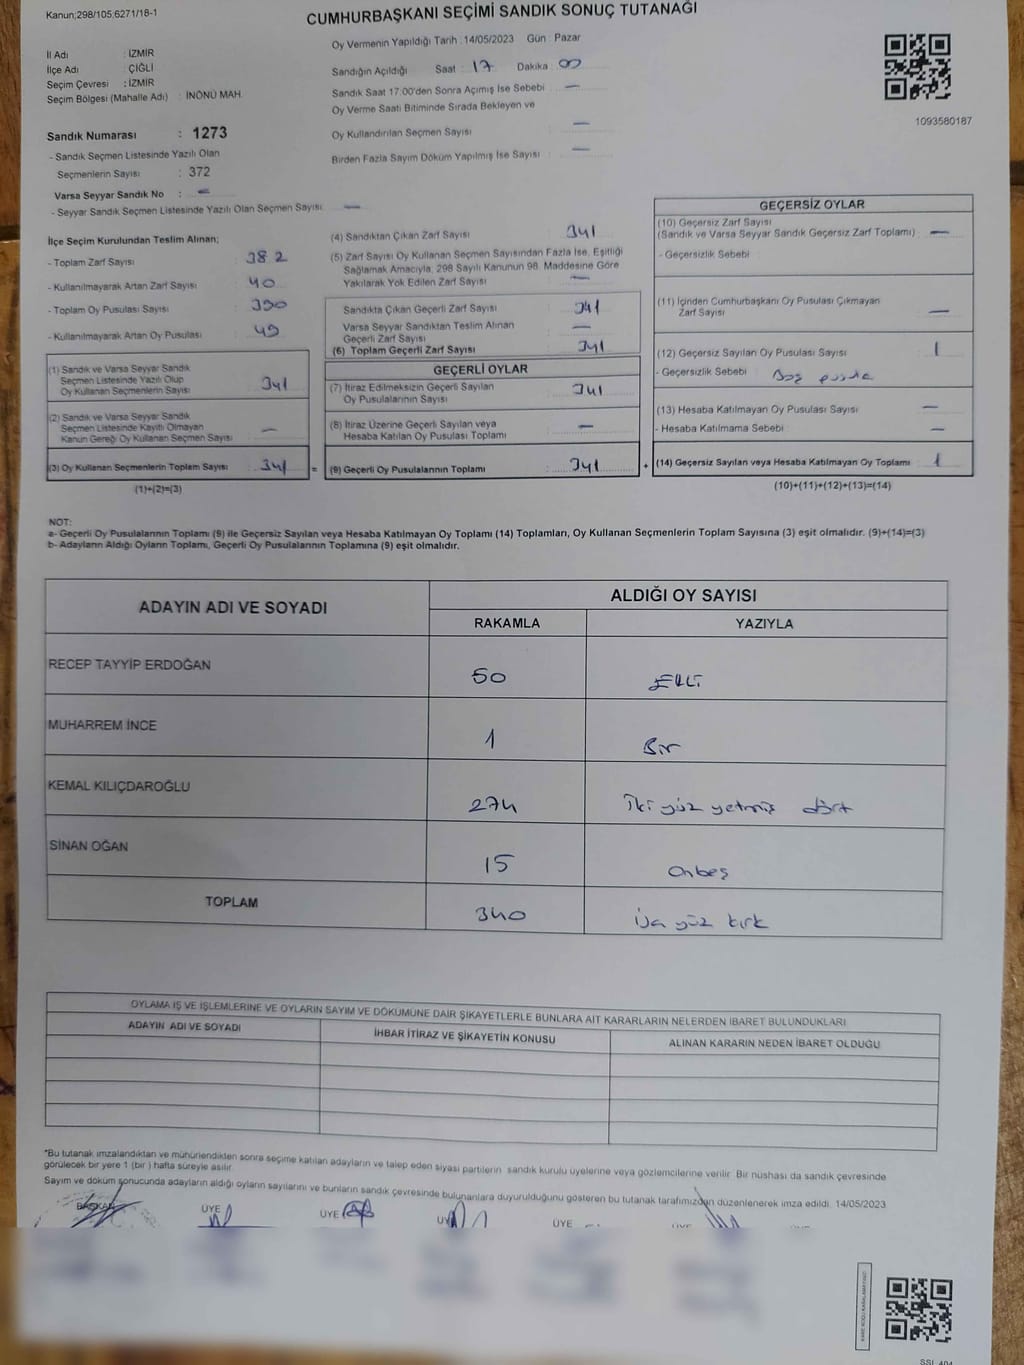 Kanun;298/105;6271/18-1
CUMHURBAŞKANI SEÇİMİ SANDIK SONUÇ TUTANAĞI
İl Adı : İZMİR
İlçe Adı : ÇİĞLİ
Seçim Çevresi : İZMİR
Seçim Bölgesi (Mahalle Adı) : İNÖNÜ MAH.
Oy Vermenin Yapıldığı Tarih : 14/05/2023 Gün : Pazar
Sandığın Açıldığı Saat : 17 Dakika : 00
Sandık Saat 17:00'den Sonra Açımış İse Sebebi : —
Oy Verme Saati Bitiminde Sırada Bekleyen ve
Oy Kullandırılan Seçmen Sayısı : —
Birden Fazla Sayım Döküm Yapılmış İse Sayısı : —
1093580187
Sandık Numarası : 1273
- Sandık Seçmen Listesinde Yazılı Olan
Seçmenlerin Sayısı : 372
Varsa Seyyar Sandık No : —
- Seyyar Sandık Seçmen Listesinde Yazılı Olan Seçmen Sayısı: —
İlçe Seçim Kurulundan Teslim Alınan;
- Toplam Zarf Sayısı : 382
- Kullanılmayarak Artan Zarf Sayısı : 40
- Toplam Oy Pusulası Sayısı : 390
- Kullanılmayarak Artan Oy Pusulası : 49
(1) Sandık ve Varsa Seyyar Sandık
Seçmen Listesinde Yazılı Olup
Oy Kullanan Seçmenlerin Sayısı : 341
(2) Sandık ve Varsa Seyyar Sandık
Seçmen Listesinde Kayıtlı Olmayan
Kanun Gereği Oy Kullanan Seçmen Sayısı : —
(3) Oy Kullanan Seçmenlerin Toplam Sayısı : 341 =
(1)+(2)=(3)
(4) Sandıktan Çıkan Zarf Sayısı : 341
(5) Zarf Sayısı Oy Kullanan Seçmen Sayısından Fazla İse, Eşitliği
Sağlamak Amacıyla, 298 Sayılı Kanunun 98. Maddesine Göre
Yakılarak Yok Edilen Zarf Sayısı : —
Sandıkta Çıkan Geçerli Zarf Sayısı : 341
Varsa Seyyar Sandıktan Teslim Alınan
Geçerli Zarf Sayısı : —
(6) Toplam Geçerli Zarf Sayısı : 341
GEÇERLİ OYLAR
(7) İtiraz Edilmeksizin Geçerli Sayılan
Oy Pusulalarının Sayısı : 341
(8) İtiraz Üzerine Geçerli Sayılan veya
Hesaba Katılan Oy Pusulası Toplamı : —
(9) Geçerli Oy Pusulalarının Toplamı : 341 +
GEÇERSİZ OYLAR
(10) Geçersiz Zarf Sayısı
(Sandık ve Varsa Seyyar Sandık Geçersiz Zarf Toplamı) : —
- Geçersizlik Sebebi :
(11) İçinden Cumhurbaşkanı Oy Pusulası Çıkmayan
Zarf Sayısı : —
(12) Geçersiz Sayılan Oy Pusulası Sayısı : 1
- Geçersizlik Sebebi : Boş pusula
(13) Hesaba Katılmayan Oy Pusulası Sayısı : —
- Hesaba Katılmama Sebebi : —
(14) Geçersiz Sayılan veya Hesaba Katılmayan Oy Toplamı : 1
(10)+(11)+(12)+(13)=(14)
NOT:
a- Geçerli Oy Pusulalarının Toplamı (9) ile Geçersiz Sayılan veya Hesaba Katılmayan Oy Toplamı (14) Toplamları, Oy Kullanan Seçmenlerin Toplam Sayısına (3) eşit olmalıdır. (9)+(14)=(3)
b- Adayların Aldığı Oyların Toplamı, Geçerli Oy Pusulalarının Toplamına (9) eşit olmalıdır.
ADAYIN ADI VE SOYADI
ALDIĞI OY SAYISI
RAKAMLA YAZIYLA
RECEP TAYYİP ERDOĞAN 50 ELLİ
MUHARREM İNCE 1 Bir
KEMAL KILIÇDAROĞLU 274 İki yüz yetmiş dört
SİNAN OĞAN 15 Onbeş
TOPLAM 340 Üç yüz kırk
OYLAMA İŞ VE İŞLEMLERİNE VE OYLARIN SAYIM VE DÖKÜMÜNE DAİR ŞİKAYETLERLE BUNLARA AİT KARARLARIN NELERDEN İBARET BULUNDUKLARI
ADAYIN ADI VE SOYADI İHBAR İTİRAZ VE ŞİKAYETİN KONUSU ALINAN KARARIN NEDEN İBARET OLDUĞU
*Bu tutanak imzalandıktan ve mühürlendikten sonra seçime katılan adayların ve talep eden siyasi partilerin sandık kurulu üyelerine veya gözlemcilerine verilir. Bir nüshası da sandık çevresinde
görülecek bir yere 1 (bir) hafta süreyle asılır.
Sayım ve döküm sonucunda adayların aldığı oyların sayılarını ve bunların sandık çevresinde bulunanlara duyurulduğunu gösteren bu tutanak tarafımızdan düzenlenerek imza edildi. 14/05/2023
BAŞKAN ÜYE ÜYE ÜYE ÜYE ÜYE